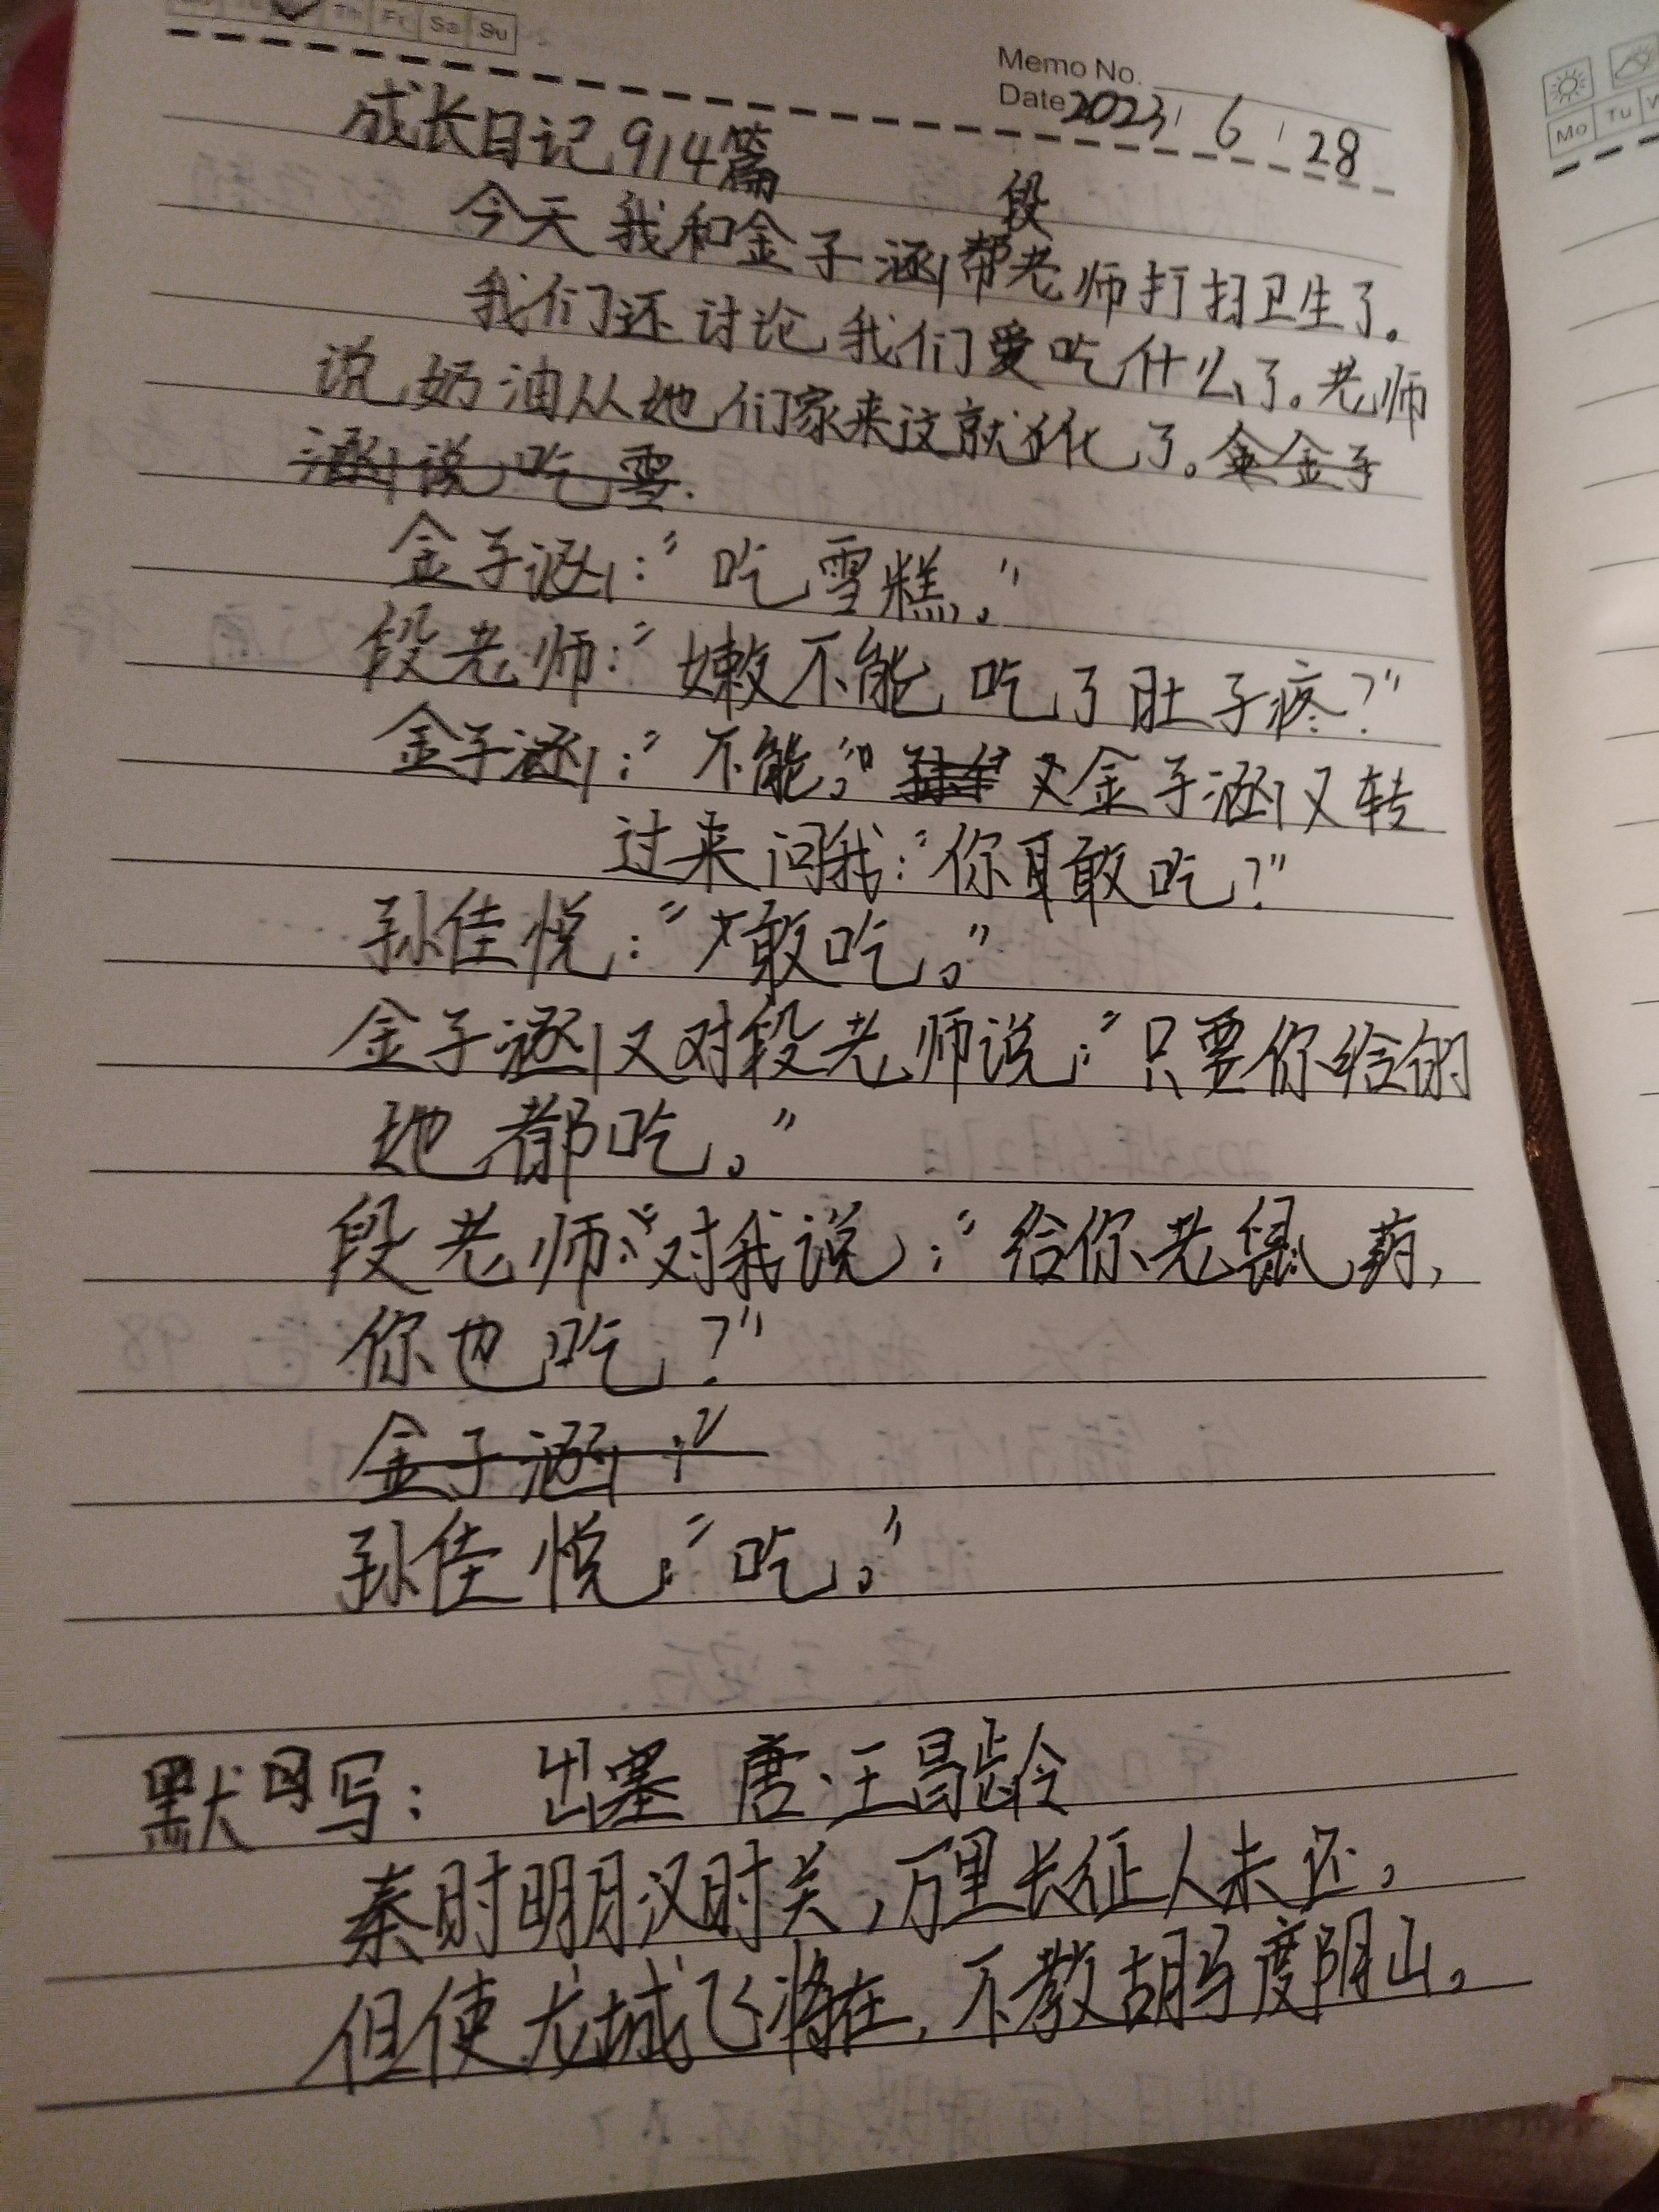 Th Fr Sa Su
Memo No.
Date 2023 / 6 / 28
成长日记914篇
段
今天我和金子涵帮老师打扫卫生了。
我们还讨论我们爱吃什么了。老师
说奶油从她们家来这就化了。金金子
涵说吃雪.
金子涵:"吃雪糕。"
段老师:"嫩不能吃了肚子疼?"
金子涵:"不能。" 又金子涵又转
过来问我:"你敢吃?"
孙佳悦:"敢吃。"
金子涵又对段老师说:"只要你给的
她都吃。"
段老师:"对我说:"给你老鼠药,
你也吃?"
金子涵:"
孙佳悦:"吃。"
默写: 出塞 唐·王昌龄
秦时明月汉时关,万里长征人未还,
但使龙城飞将在,不教胡马度阴山。
Mo Tu W